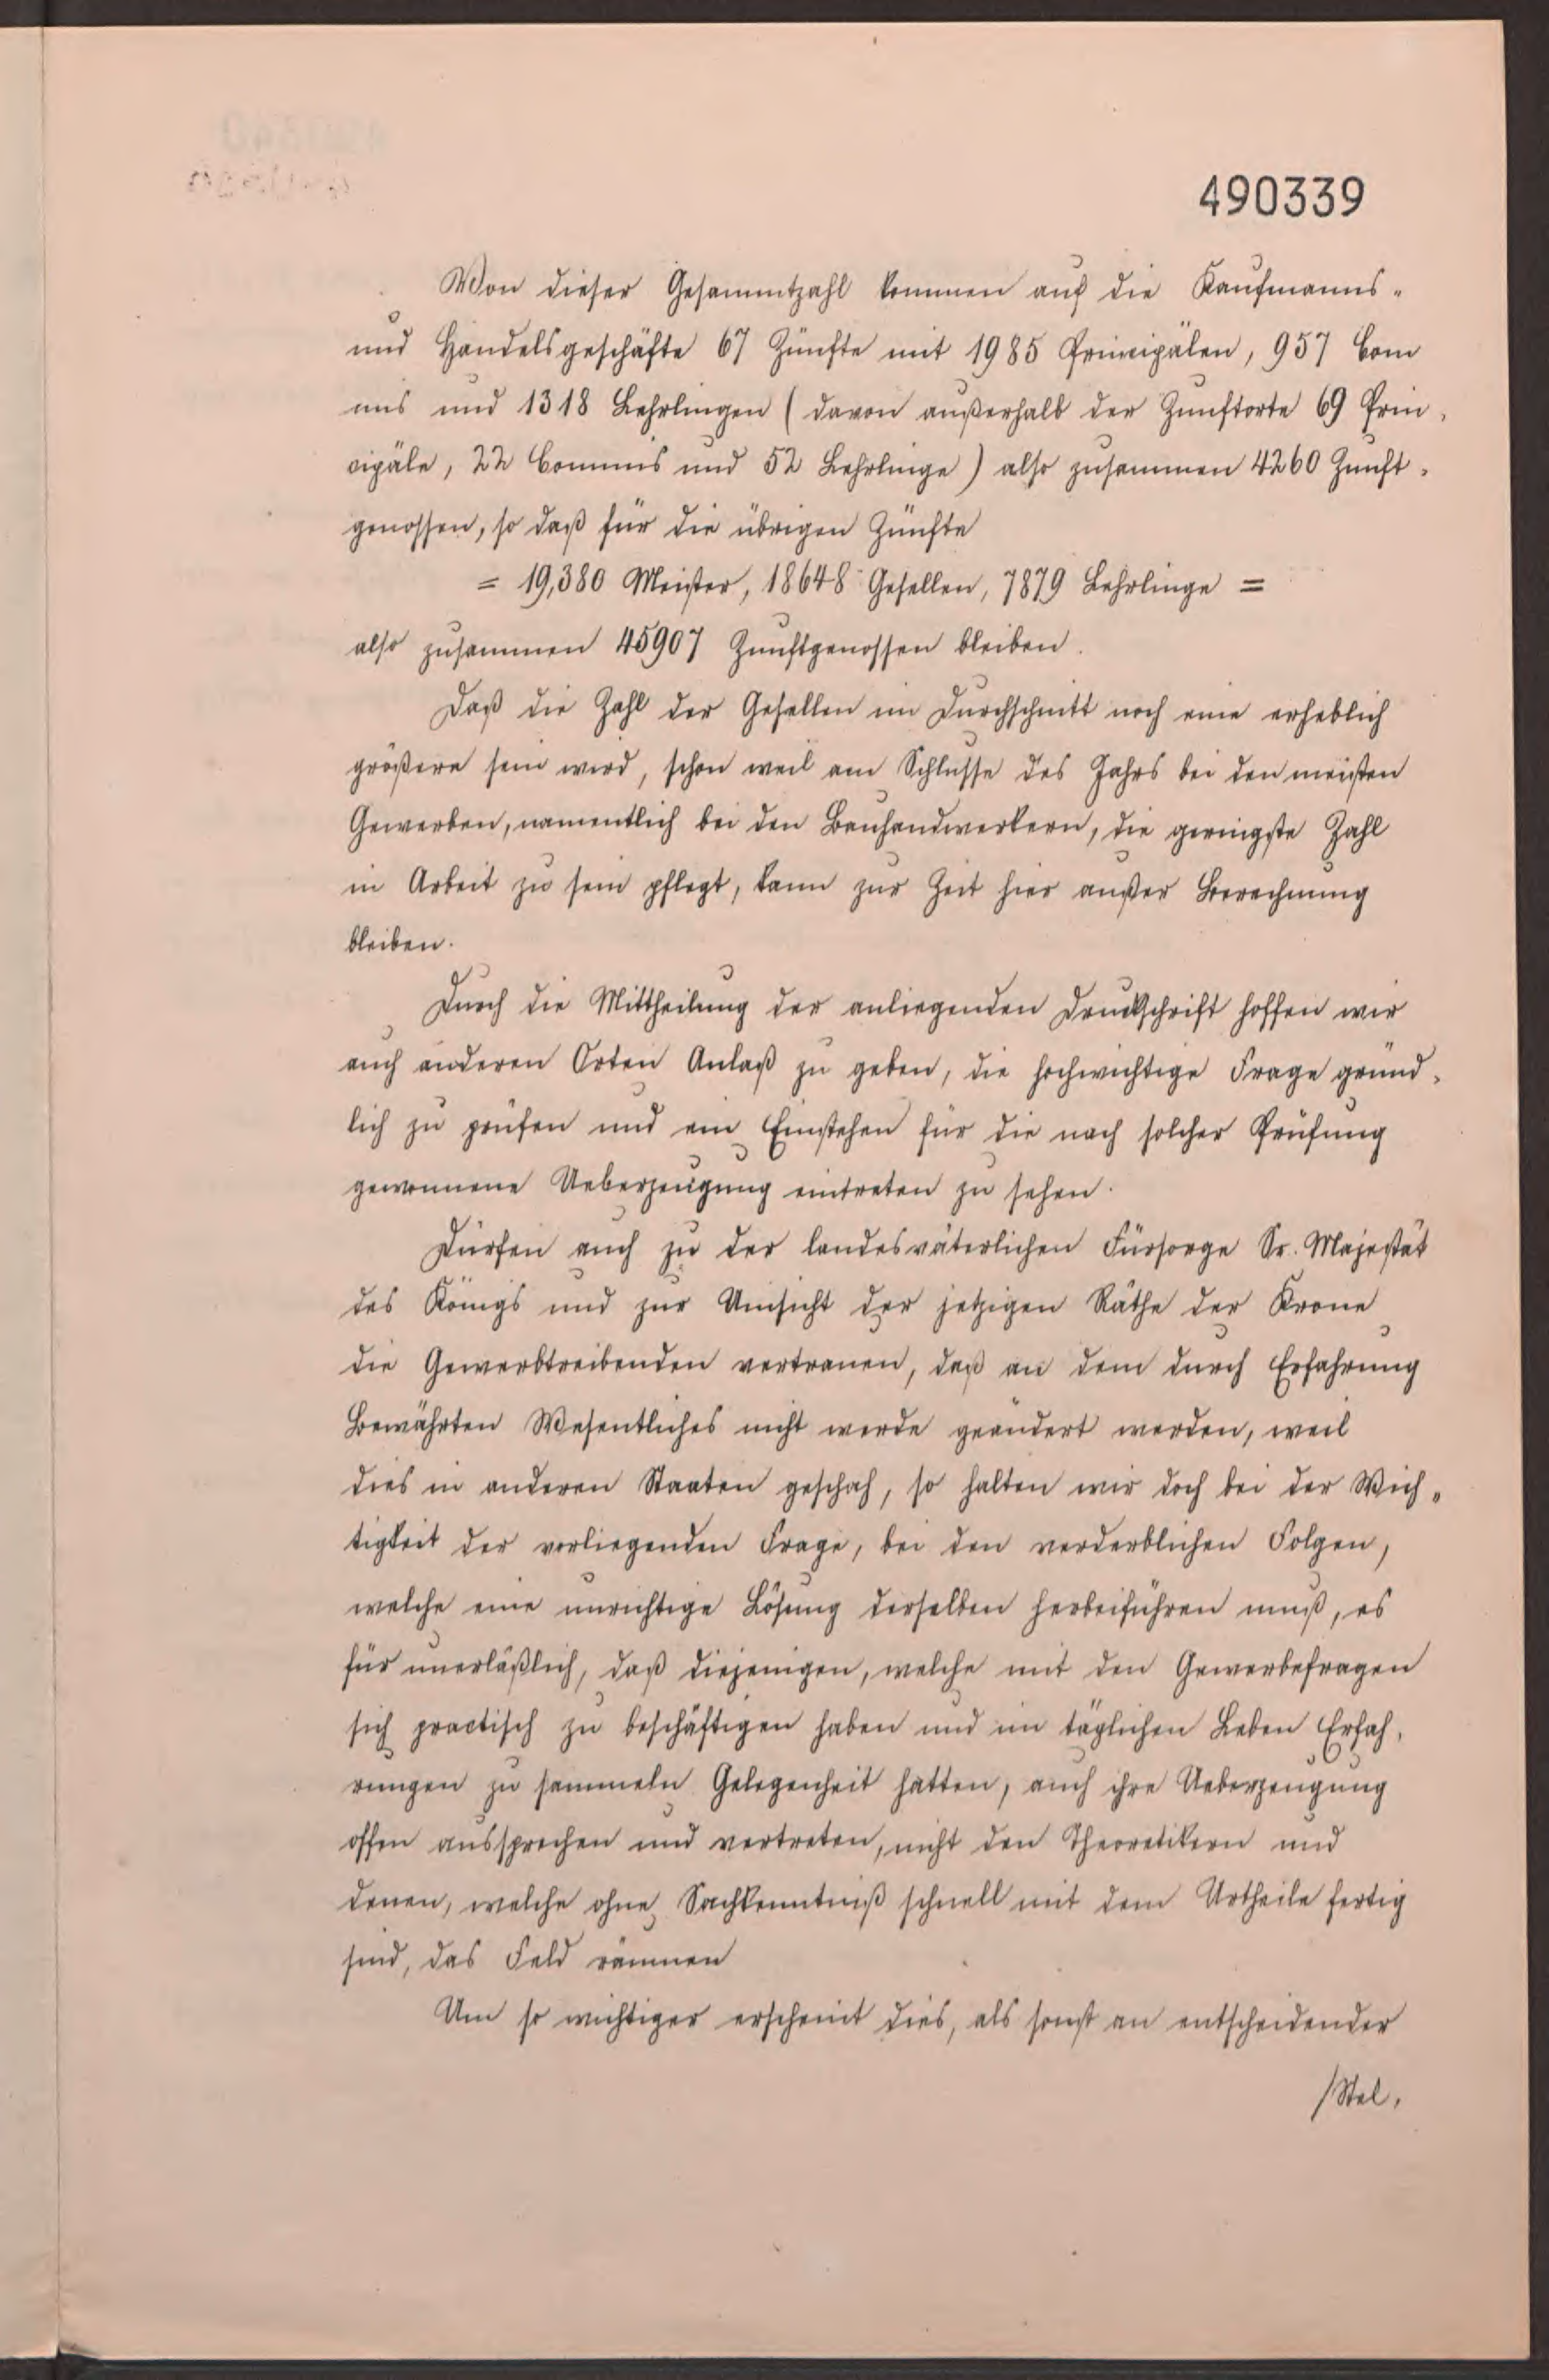 490339
Von dieser Gesammtzahl kommen auf die Kaufmanns-
und Handelsgeschäfte 67 Zünfte mit 1985 Principälen, 957 Com
mis und 1318 Lehrlingen (davon außerhalb der Zunftorte 69 Prin-
cipäle, 22 Commis und 52 Lehrlinge) also zusammen 4260 Zunft-
genossen, so daß für die übrigen Zünfte
= 19,380 Meister, 18648 Gesellen, 7879 Lehrlinge =
also zusammen 45907 Zunftgenossen bleiben.
Daß die Zahl der Gesellen im Durchschnitt noch eine erheblich
größere sein wird, schon weil am Schlusse des Jahrs bei den meisten
Gewerben, namentlich bei den Bauhandwerkern, die geringste Zahl
in Arbeit zu sein pflegt, kann zur Zeit hier außer Berechnung
bleiben.
Durch die Mittheilung der anliegenden Druckschrift hoffen wir
auch anderen Orten Anlaß zu geben, die hochwichtige Frage gründ-
lich zu prüfen und ein Einstehen für die nach solcher Prüfung
gewonnene Ueberzeugung eintreten zu sehen.
Dürfen auch zu der landesväterlichen Fürsorge Sr. Majestät
des Königs und zur Umsicht der jetzigen Räthe der Krone
die Gewerbtreibenden vertrauen, daß an dem durch Erfahrung
Bewährten Wesentliches nicht werde geändert werden, weil
dies in anderen Staaten geschah, so halten wir doch bei der Wich-
tigkeit der vorliegenden Frage, bei den verderblichen Folgen,
welche eine unrichtige Lösung derselben herbeiführen muß, es
für unerläßlich, daß diejenigen, welche mit den Gewerbefragen
sich practisch zu beschäftigen haben und im täglichen Leben Erfah-
rungen zu sammeln Gelegenheit hatten, auch ihre Ueberzeugung
offen aussprechen und vertreten, nicht den Theoretikern und
denen, welche ohne Sachkenntniß schnell mit dem Urtheile fertig
sind, das Feld räumen
Um so wichtiger erscheint dies, als sonst an entscheidender
/Stel-